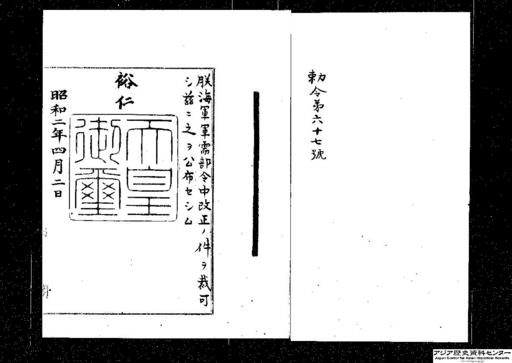 勅令第六十七號
朕海軍軍需部令中改正ノ件ヲ裁可
シ茲ニ之ヲ公布セシム
裕仁
天皇御璽
昭和二年四月二日
アジア歴史資料センター
Japan Center for Asian Historical Records